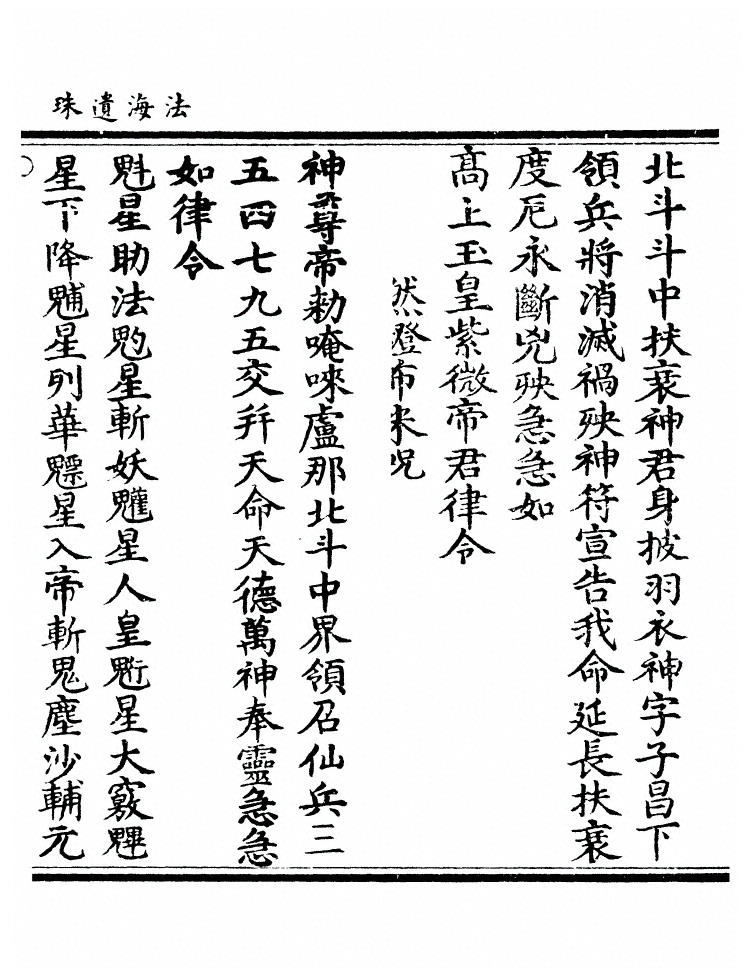 法海遺珠
北斗斗中扶衰神君身披羽衣神字子昌下
領兵將消滅禍殃神符宣告我命延長扶衰
度厄永斷兇殃急急如
高上玉皇紫微帝君律令
然燈布米呪
神尊帝勑唵唻盧那北斗中界領召仙兵三
五四七九五交幷天命天德萬神奉靈急急
如律令
魁星助法魡星斬妖魓星人皇魒星大竅魓
星下降魓星列華魒星入帝斬鬼塵沙輔元